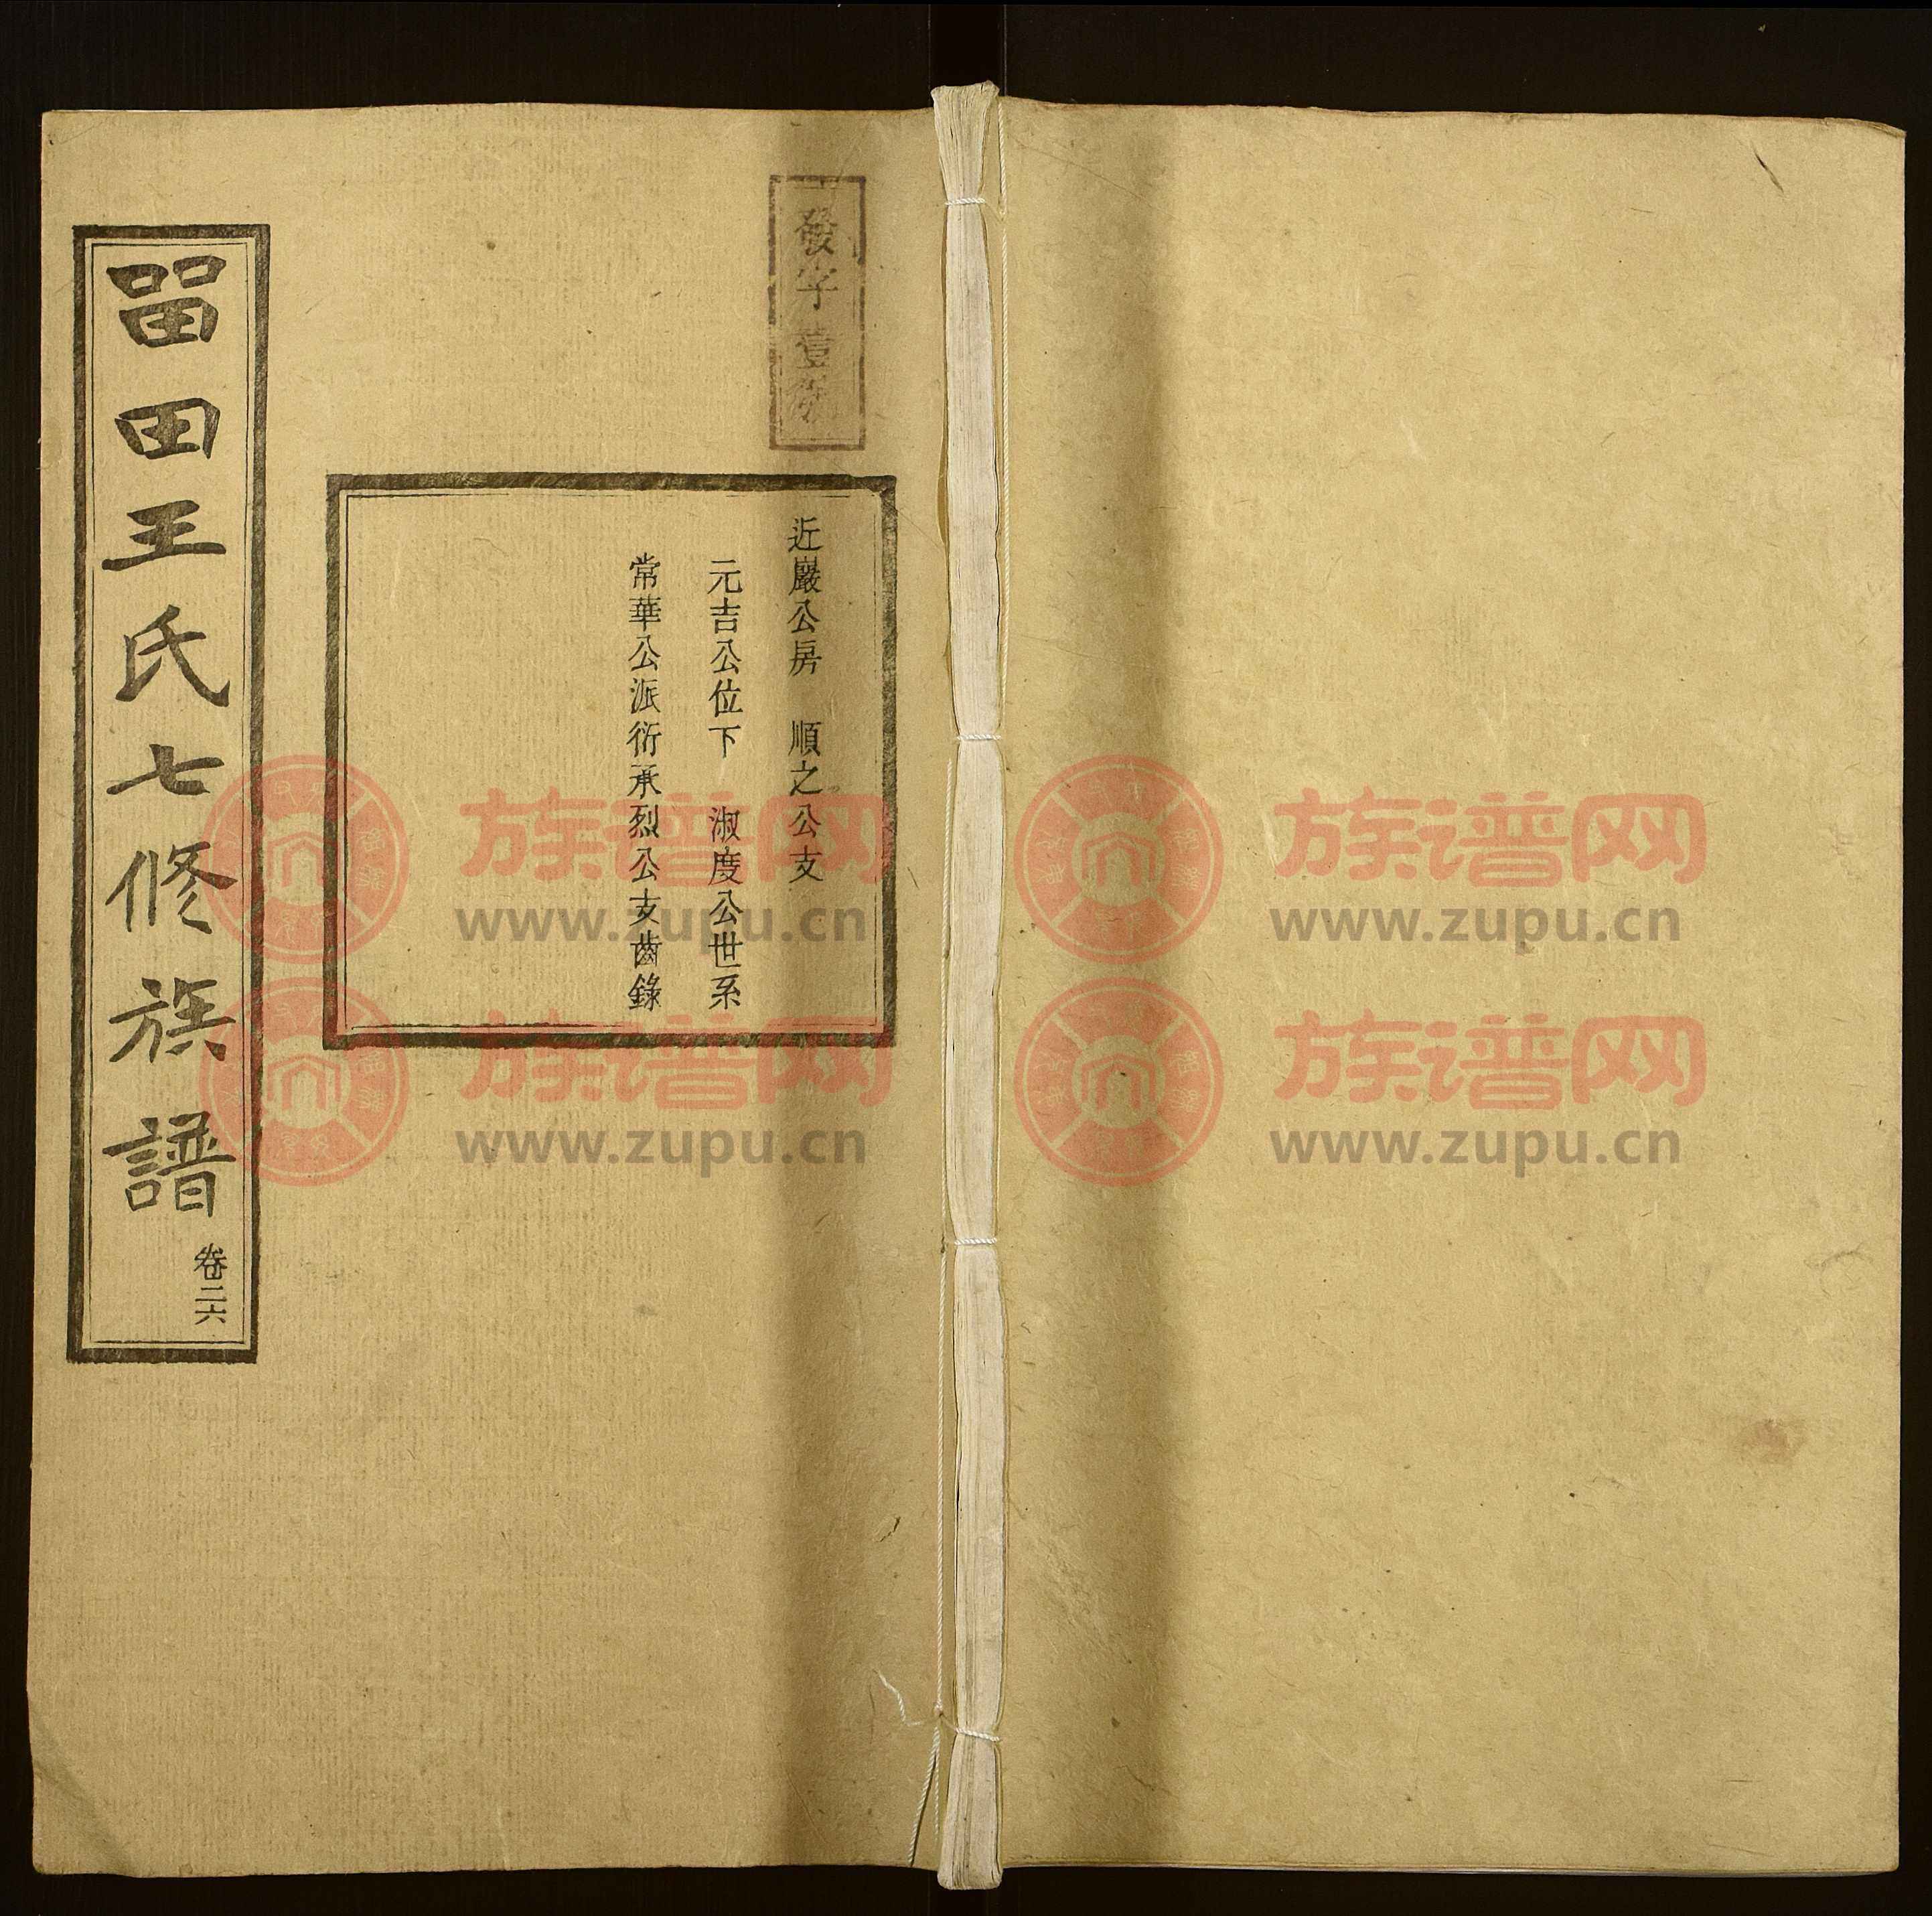 發字壹號
近巖公房　順之公支
元吉公位下　淑度公世系
常華公派衍承烈公支齒錄
畱田王氏七修族譜
卷二六
族谱网
www.zupu.cn
族谱网
www.zupu.cn
族谱网
www.zupu.cn
族谱网
www.zupu.cn